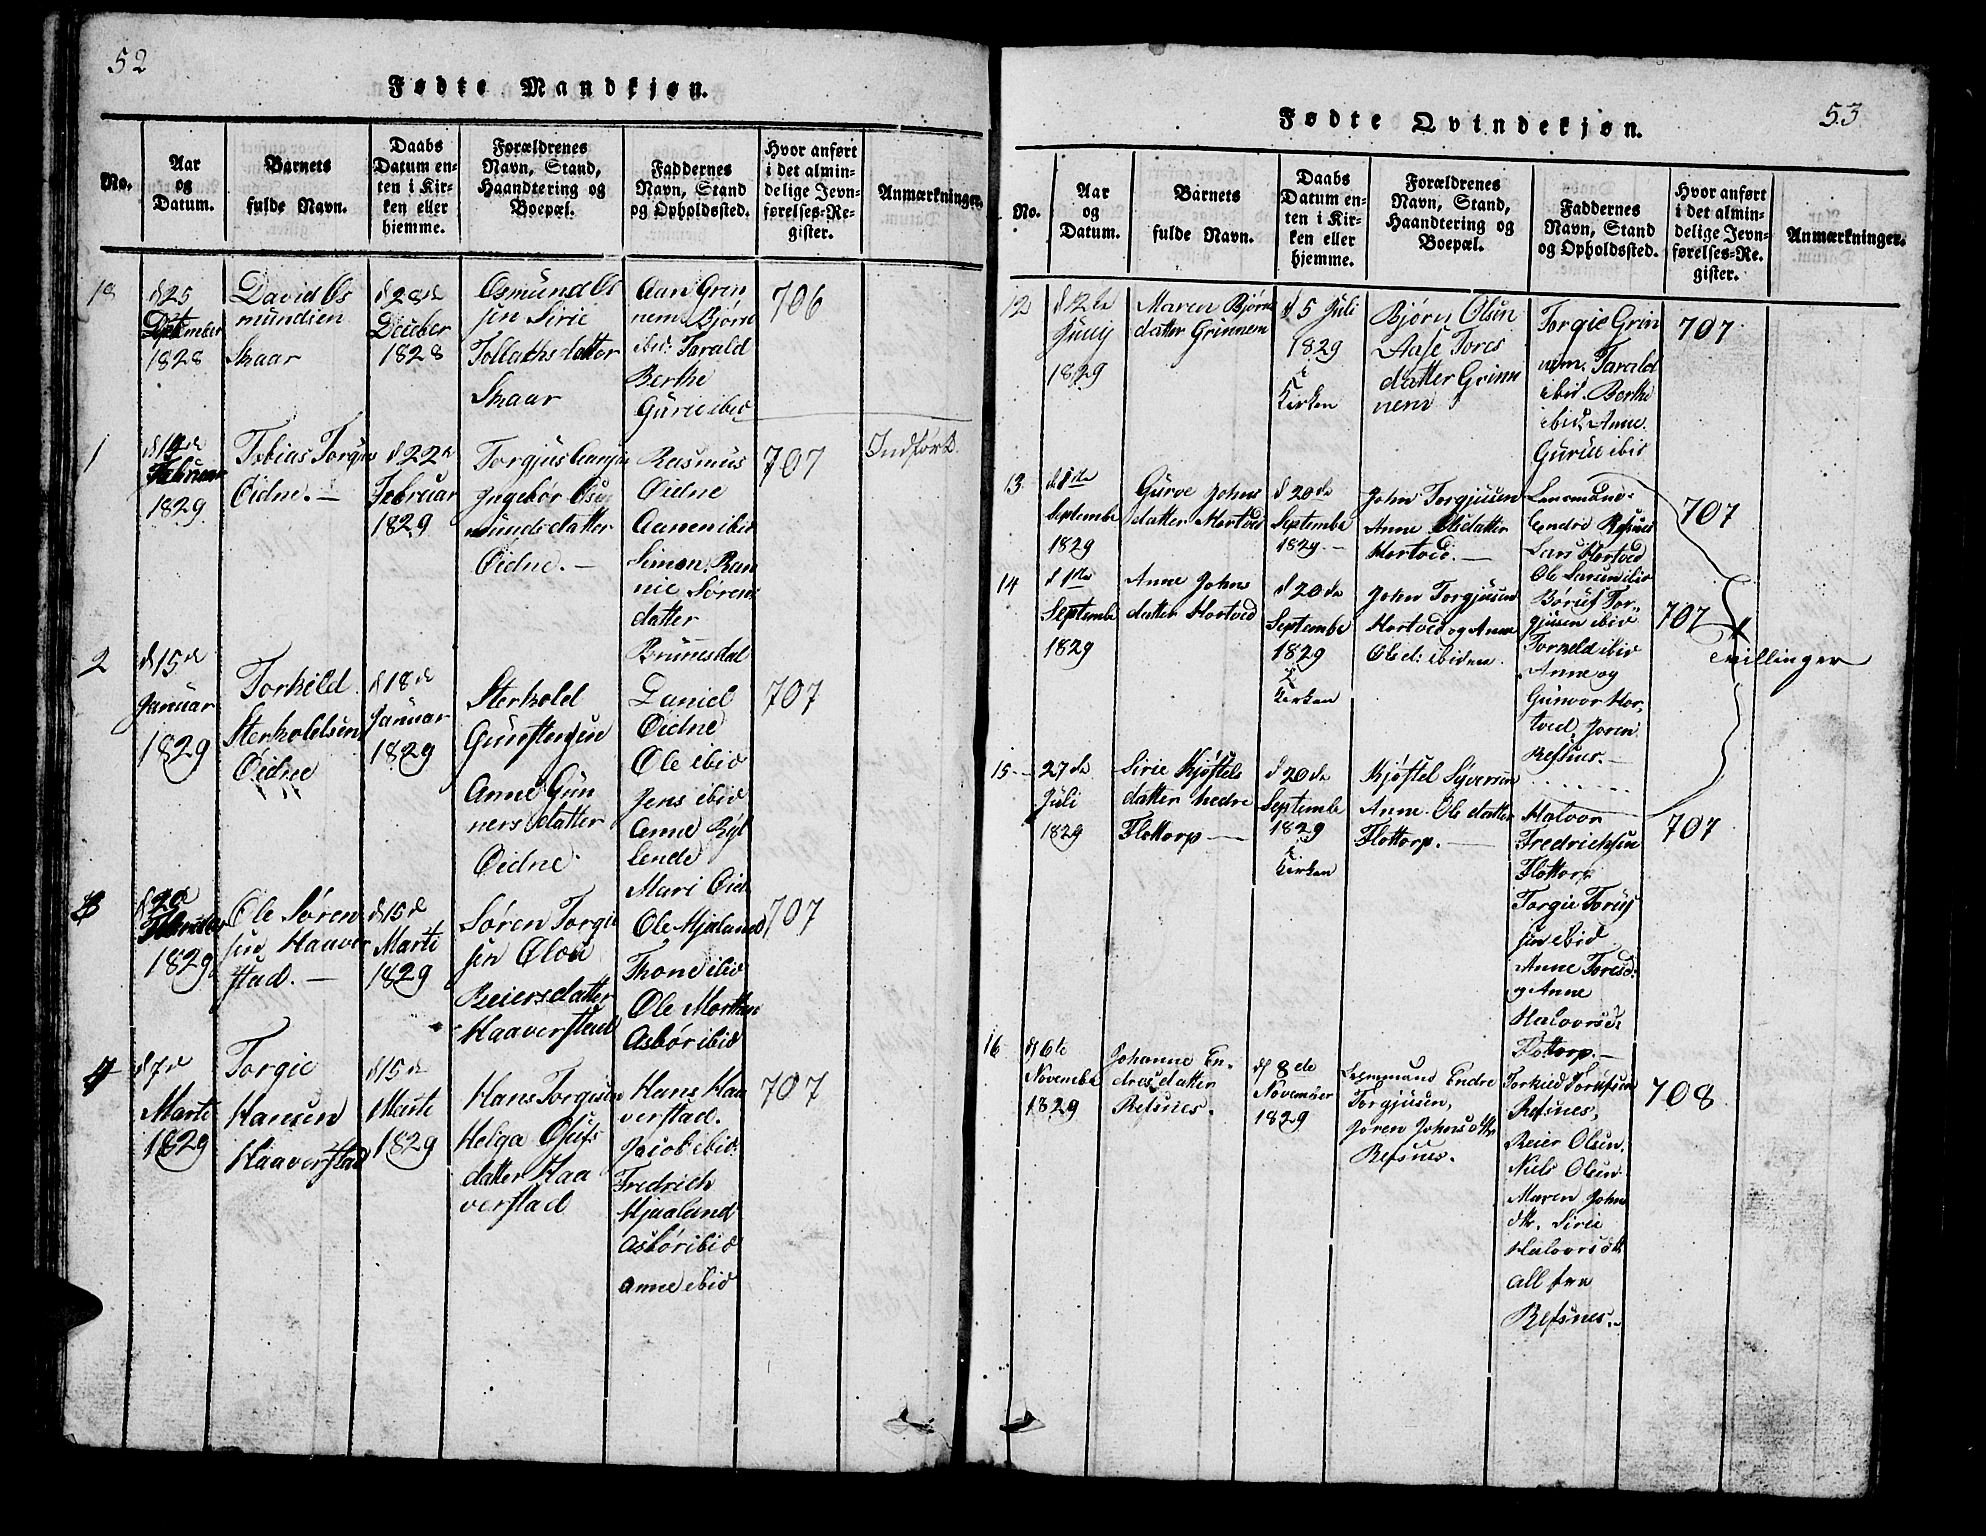 52
Fødte Mandkjøn.
No.
Aar
og
Datum.
Barnets
fulde Navn.
Daabs
Datum en-
ten i Kir-
ken eller
hjemme.
Forældrenes
Navn, Stand,
Haandtering og
Boepæl.
Faddernes
Navn, Stand
og Opholdssted.
Hvor anført
i det almin-
delige Jevn-
førelses-Re-
gister.
Anmærkninger.
18
d 25
1828
David Os
mundsen
Skaar
d 28de
December
1828
Osmund Os
sen Sirie
Tollachsdatter
Skaar
Aan Grin
nem. Bjørn
ibid: Tarald
Berthe
Gurie ibid
706
1
Februar
1829
Tobias Torgus
Øidne. —
d 22de
Februar
1829
Torgjus
Ingebør Osu
mundsdatter
Øidne. —
Rasmus
Øidne
Aanen ibid
Simon. Ran
nie Sørens
datter
Brunesdal
707
Indført.
2
d 15de
Januar
1829
Torkild
Sterkoldsen
Øidne
d 18de
Januar
1829
Sterkold
Gunstensen
Anne Gun
ners datter
Øidne
Daniel
Øidne
Ole ibid
Jens ibid
Anne Røl
lende
Mari Øid
707
3
1829
Ole Søren
sen Haaver
stad. —
d 15de
Marti
1829
Søren Torgie
sen Olou
Reiersdatter
Haaverstad
Ole Hjaland
Thone ibid
Ole Morthen
Asbør ibid
707
4
d 7de
Marti
1829
Torgie
Hansen
Haaverstad
d 15de
Marti
1829
Hans Torgiesen
Helga Osufs
datter Haa
verstad
Hans Haa
verstad.
Jacob ibid:
Fredrich
Hjaaland
Asbør ibid
Anne ibid
707
53
Fødte Qvindekjøn.
No.
Aar
og
Datum.
Barnets
fulde Navn.
Daabs
Datum en-
ten i Kir-
ken eller
hjemme.
Forældrenes
Navn, Stand,
Haandtering og
Boepæl.
Faddernes
Navn, Stand
og Opholdssted.
Hvor anført
i det almin-
delige Jevn-
førelses-Re-
gister.
Anmærkninger.
12
d 12te
Junij
1829
Maren Bjørns
datter Grinnem
d 5 Juli
1829
i
Kirken
Bjørn Olsen
Aase Tores
datter Grin
nem
Torgie Grin
nem. Tarald
ibid. Berthe
ibid. Anne.
Gurie ibid
707
13
d 1ste
Septembe
1829
Gurve Johns
datter Hortved
d 20de
Septembe
1829. —
John Torgjusen
Anne Olsdatter
Hortved. —
Lensmand
Endre Refsnes
Lars Hortved
Ole Larsen ibid
707
14
d 1ste
Septembe
1829
Anne Johns
datter Hortved
d 20de
Septembe
1829
i
Kirken
John Torgjusen
Hortved og Anne
Olsd: ibidem.
Børuf Tor-
gjusen ibid
Torneld ibid
Anne og
Gunvor Hor
tved, Joren
Refsnes. —
707
Tvillinger
15 –
27de
Juli
1829
Sirie Kjøstels
datter nedre
Flottorp —
d 20de
Septembe
1829
i
Kirken
Kjøstel Syversen
Anne Ols datter
Flottorp. —
Halvor
Fredrichsen
Flottorp
Torgie Torus
sen ibid
Anne Toresd:
og Anne
Halvorsd:
Flottorp. —
707
16
d 6te
Novembe
1829
Johanne En-
dresdatter
Refsnes.
d 8de
November
1829
Lensmand Endre
Torgjusen,
Joren Johnsdttr
Refsnes.
Torkild Torufsen
Refsnes,
Reier Olsen.
Niels Olsen
Maren Johns
dtr. Sirie
Halvorsdtr
all fra
Refsnes. –
708